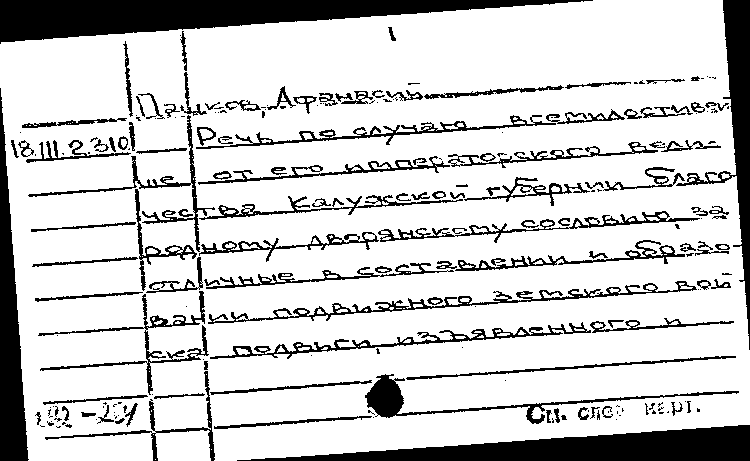 1
Пашков, Афанасий
18.III.2.310 Речь по случаю всемилостивей
ше от его императорского вели-
чества Калужской губернии благо
родному дворянскому сословию, за
отличные в составлении и образо-
вании подвижного земского вой
ска подвиги, изъявленного и
См. след карт.